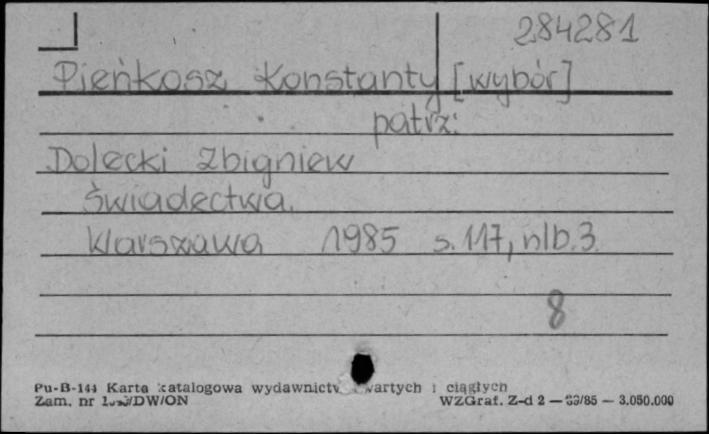 284281
Pieńkosz Konstanty [wybór]
patrz:
Dolecki Zbigniew
Świadectwa.
Warszawa 1985 s. 117, nlb. 3.
8
Pu-B-144 Karta katalogowa wydawnictw zwartych i ciągłych
Zam. nr DW/ON WZGraf. Z-d 2 — /85 — 3.050.000